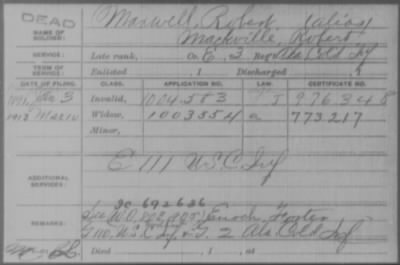 DEAD
NAME OF SOLDIER: Maxwell, Robert, alias
Mackville, Robert
SERVICE: Late rank, Co. E, 3 Reg't Ala Cld Inf
TERM OF SERVICE: Enlisted , 1 Discharged , 1
DATE OF FILING. CLASS. APPLICATION NO. LAW. CERTIFICATE NO.
1891, 3 Invalid, 1004583 976348
1912 Mar 16 Widow, 1003554 a 773217
Minor,
ADDITIONAL SERVICES: E 111 U.S.C. Inf
3c 692636
REMARKS: See W.O. 802,805, Enoch Foster
G 110, U.S.C. Inf, G. 2 Ala Cld Inf
Died , 1 , at